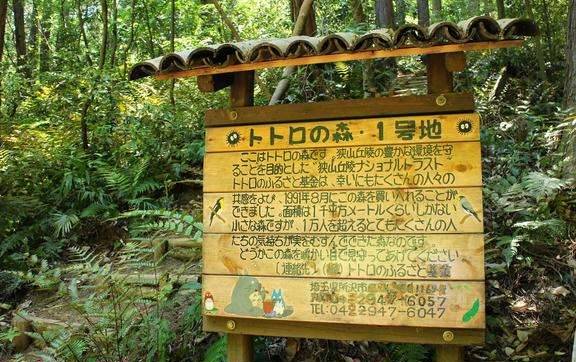 トトロの森・1号地
ここはトトロの森です。狭山丘陵の豊かな環境を守
ることを目的とした"狭山丘陵ナショナルトラスト
トトロのふるさと基金は、幸いにもたくさんの人々の
共感をよび、1991年8月にこの森を買い入れることが
できました。面積は1千平方メートルくらいしかない
小さな森ですが、1万人を超えるとてもたくさんの人
たちの気持ちが実をむすんでできた森なのです。
どうかこの森を暖かい目で見守ってあげてください
(連絡先)(財)トトロのふるさと基金
埼玉県所沢市
FAX:042-947-6057
TEL:0422947-6047